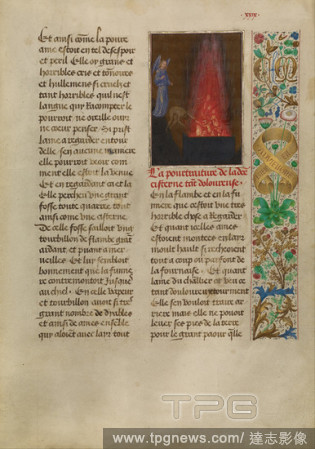 xxix
Et ainsi come la poure
ame estoit en tel desespoir
et peril Elle oy grans et
horribles cris et tonoires
et hullemens si cruelz et
tant horribles quil nest
langue qui raconpter le
pourroit ne oreille ouir
ne cueur penser Si prist
lame a regarder entour
delle sen aucune maniere
elle pourroit veoir com
ment elle estoit la venue
Et en regardant ca et la
Elle percheu une grant
fosse aurques quarree tout
ainsi come une cisterne
De celle fosse sailloit ung
tourbillon de flambe grant
ardant et puant a mer
veilles Et lui sembloit
bonnement que la fumee
contremontoit jusques
au chiel En celle vapeur
et tourbillon avoit si tres
grant nombre de dyables
et ainsi de ames enseble
qui aloient avec lair tout
La pourtraiture de ladte
cisterne tant doloureuse
En la flambe et en la fu
mee qui estoit une tres
horrible chose a regarder
Et quant icelles ames
estoient montees en lair
moult hault si recheoient
tout a coup ou parfont de
la fournaise Et quant
lame du chevalier ot veu ce
tant douloureux tourment
Elle sen vouloit traire ar
riere mais elle ne povoit
lever ses pies de la terre
pour le grant paour quelle
TPG
www.tpgnews.com/達志影像